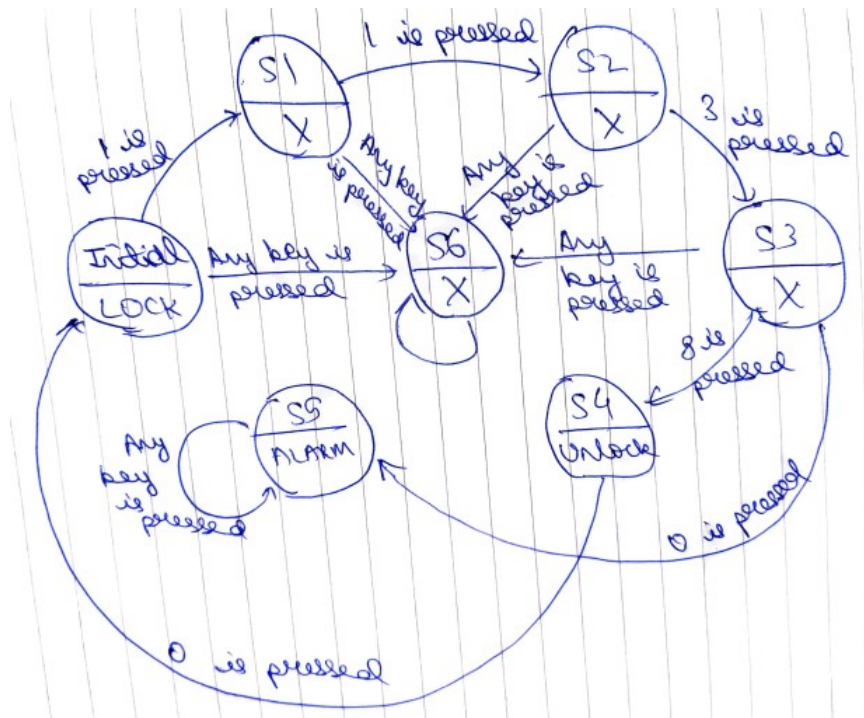 1 is pressed
S1
X
S2
X
1 is
pressed
3 is
pressed
Any key
is pressed
Any
key is
pressed
Initial
LOCK
Any key is
pressed
S6
X
Any
key is
pressed
S3
X
8 is
pressed
S5
ALARM
S4
UNLock
Any
key
is
pressed
0 is pressed
0 is pressed